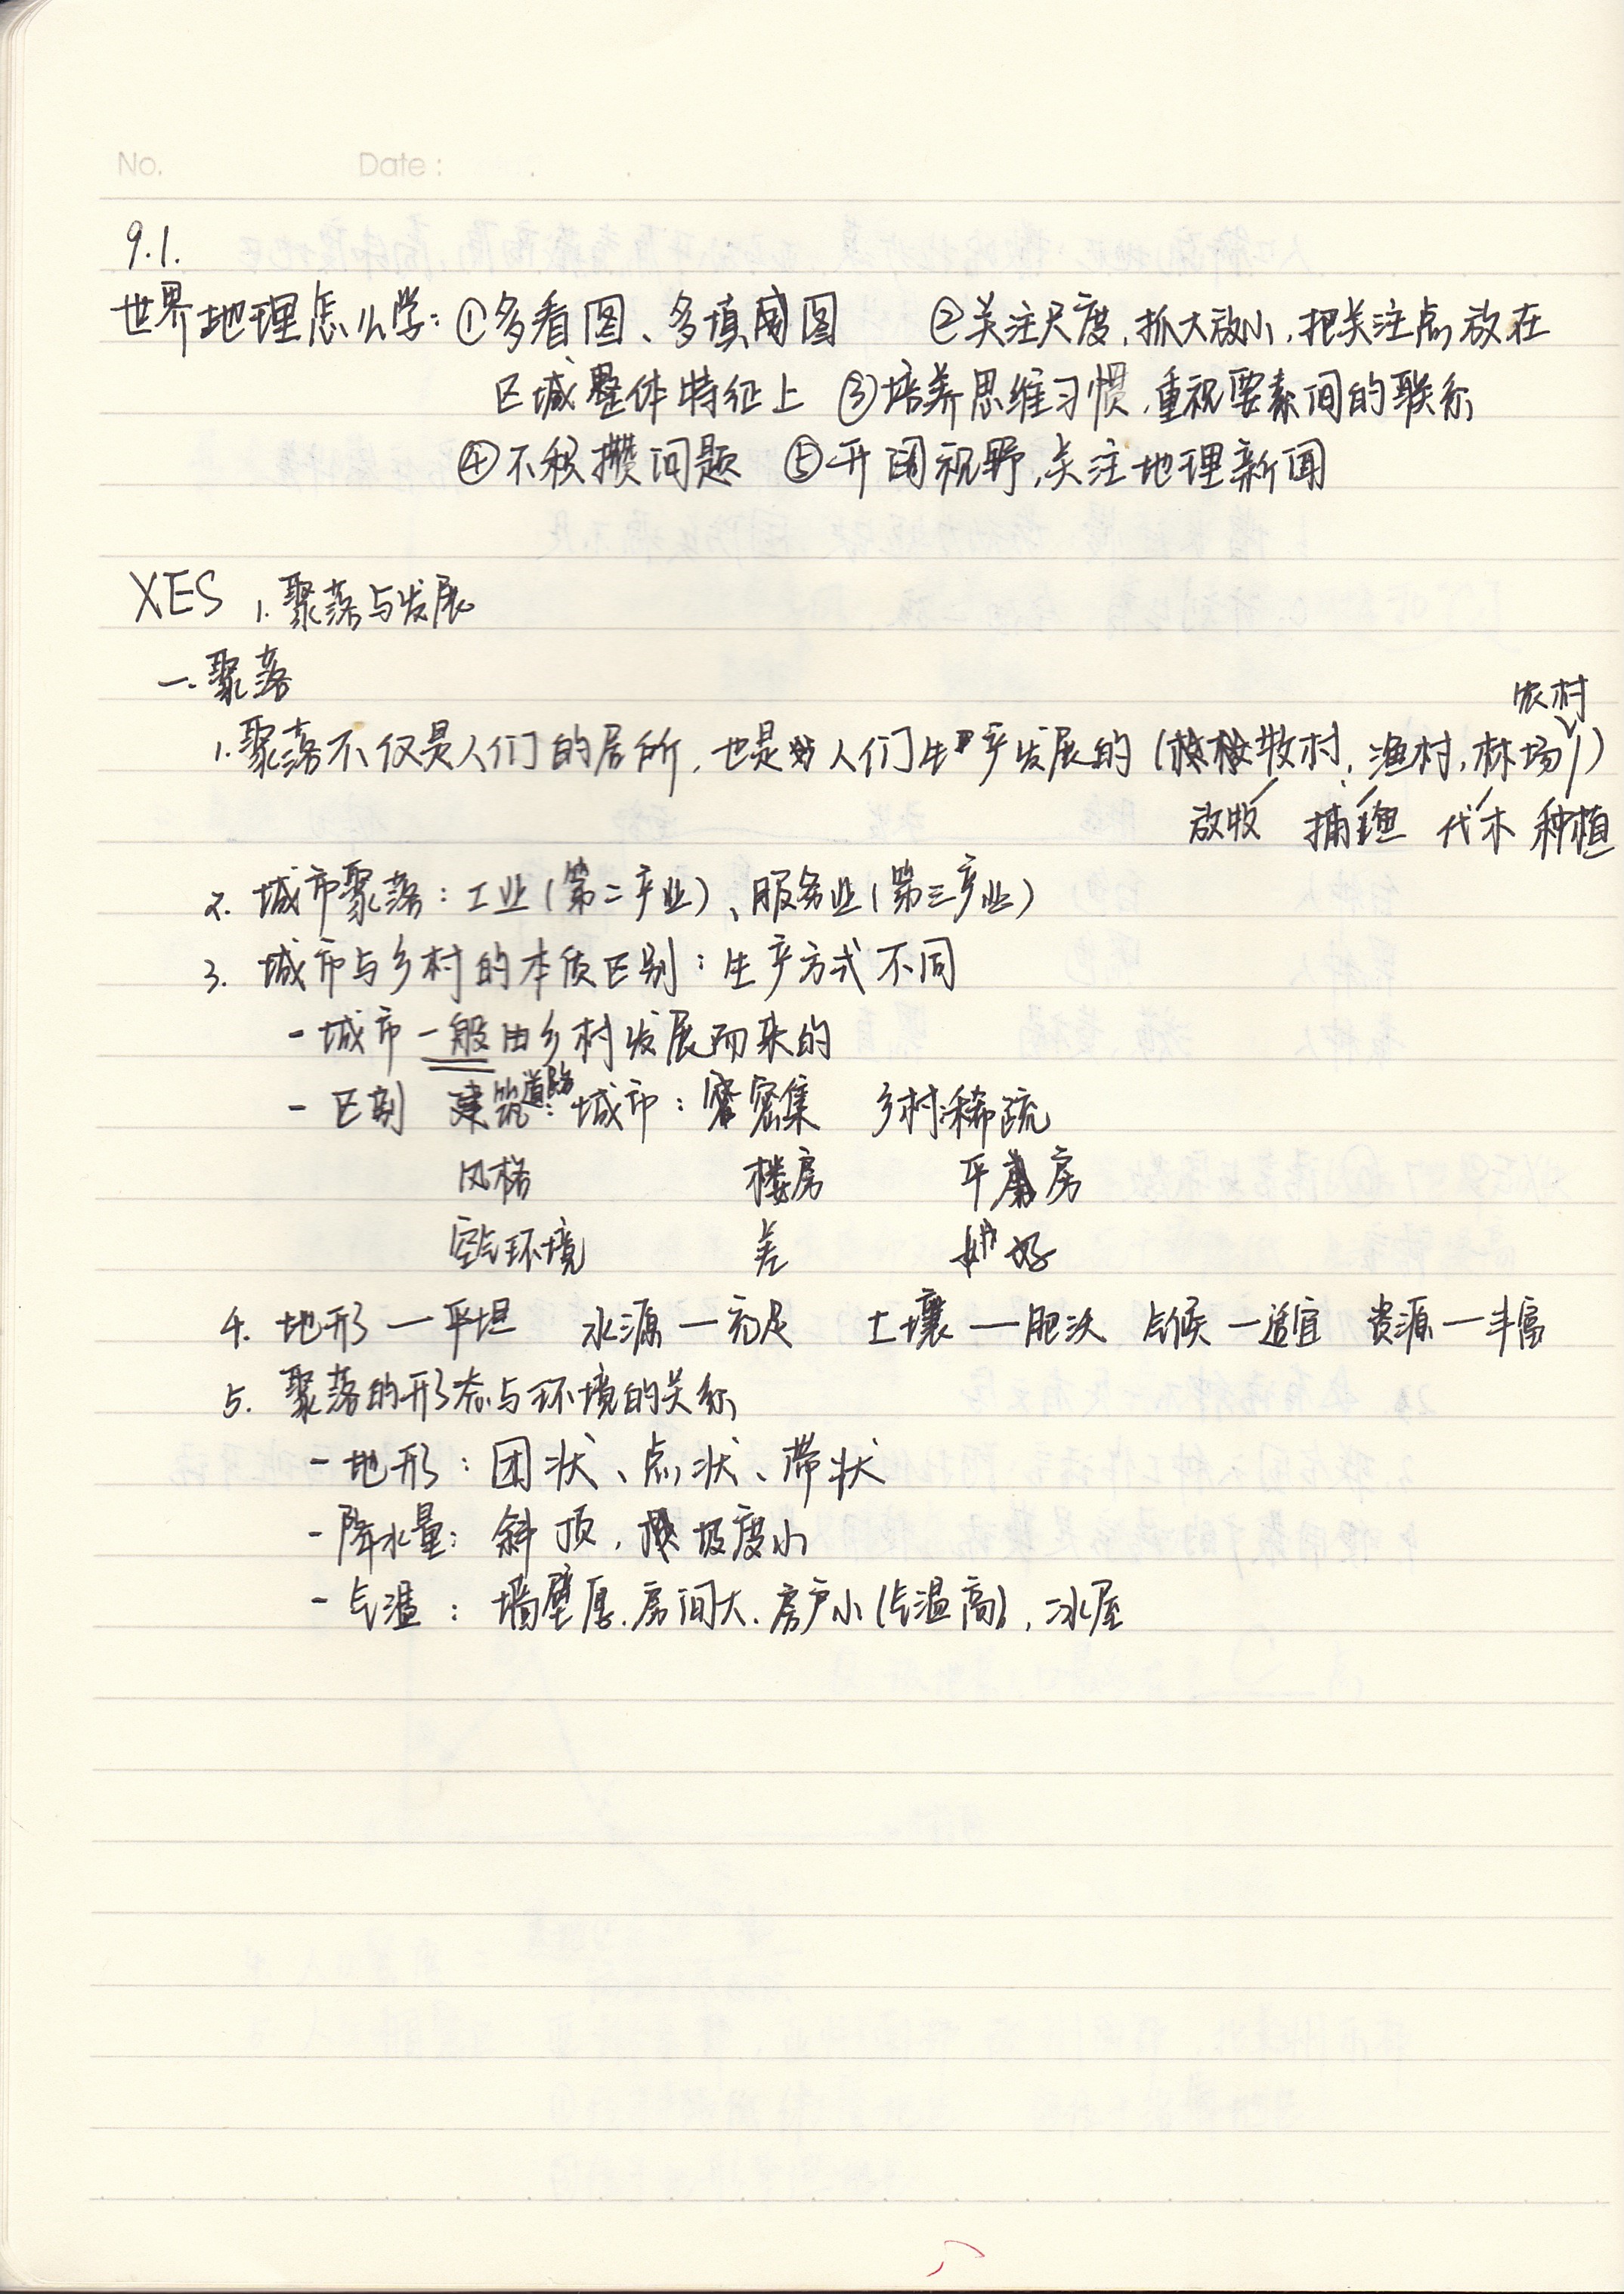 No. Date:
9.1.
世界地理怎么学:①多看图、多填图 ②关注尺度,抓大放小,把关注点放在
区域整体特征上 ③培养思维习惯,重视要素间的联系
④不积攒问题 ⑤开阔视野,关注地理新闻
XES 1.聚落与发展
一.聚落
农村
1.聚落不仅是人们的居所,也是人们生产发展的(牧村,渔村,林场)
放牧 捕渔 伐木 种植
2. 城市聚落:工业(第二产业)、服务业(第三产业)
3. 城市与乡村的本质区别:生产方式不同
- 城市一般由乡村发展而来的
- 区别 建筑道路:城市:密集 乡村:稀疏
风格 楼房 平房
空气环境 差 好
4. 地形—平坦 水源—充足 土壤—肥沃 气候—适宜 资源—丰富
5. 聚落的形态与环境的关系
- 地形:团状、点状、带状
- 降水量:斜顶,坡度小
- 气温:墙壁厚.房间大.房户小(气温高),冰屋